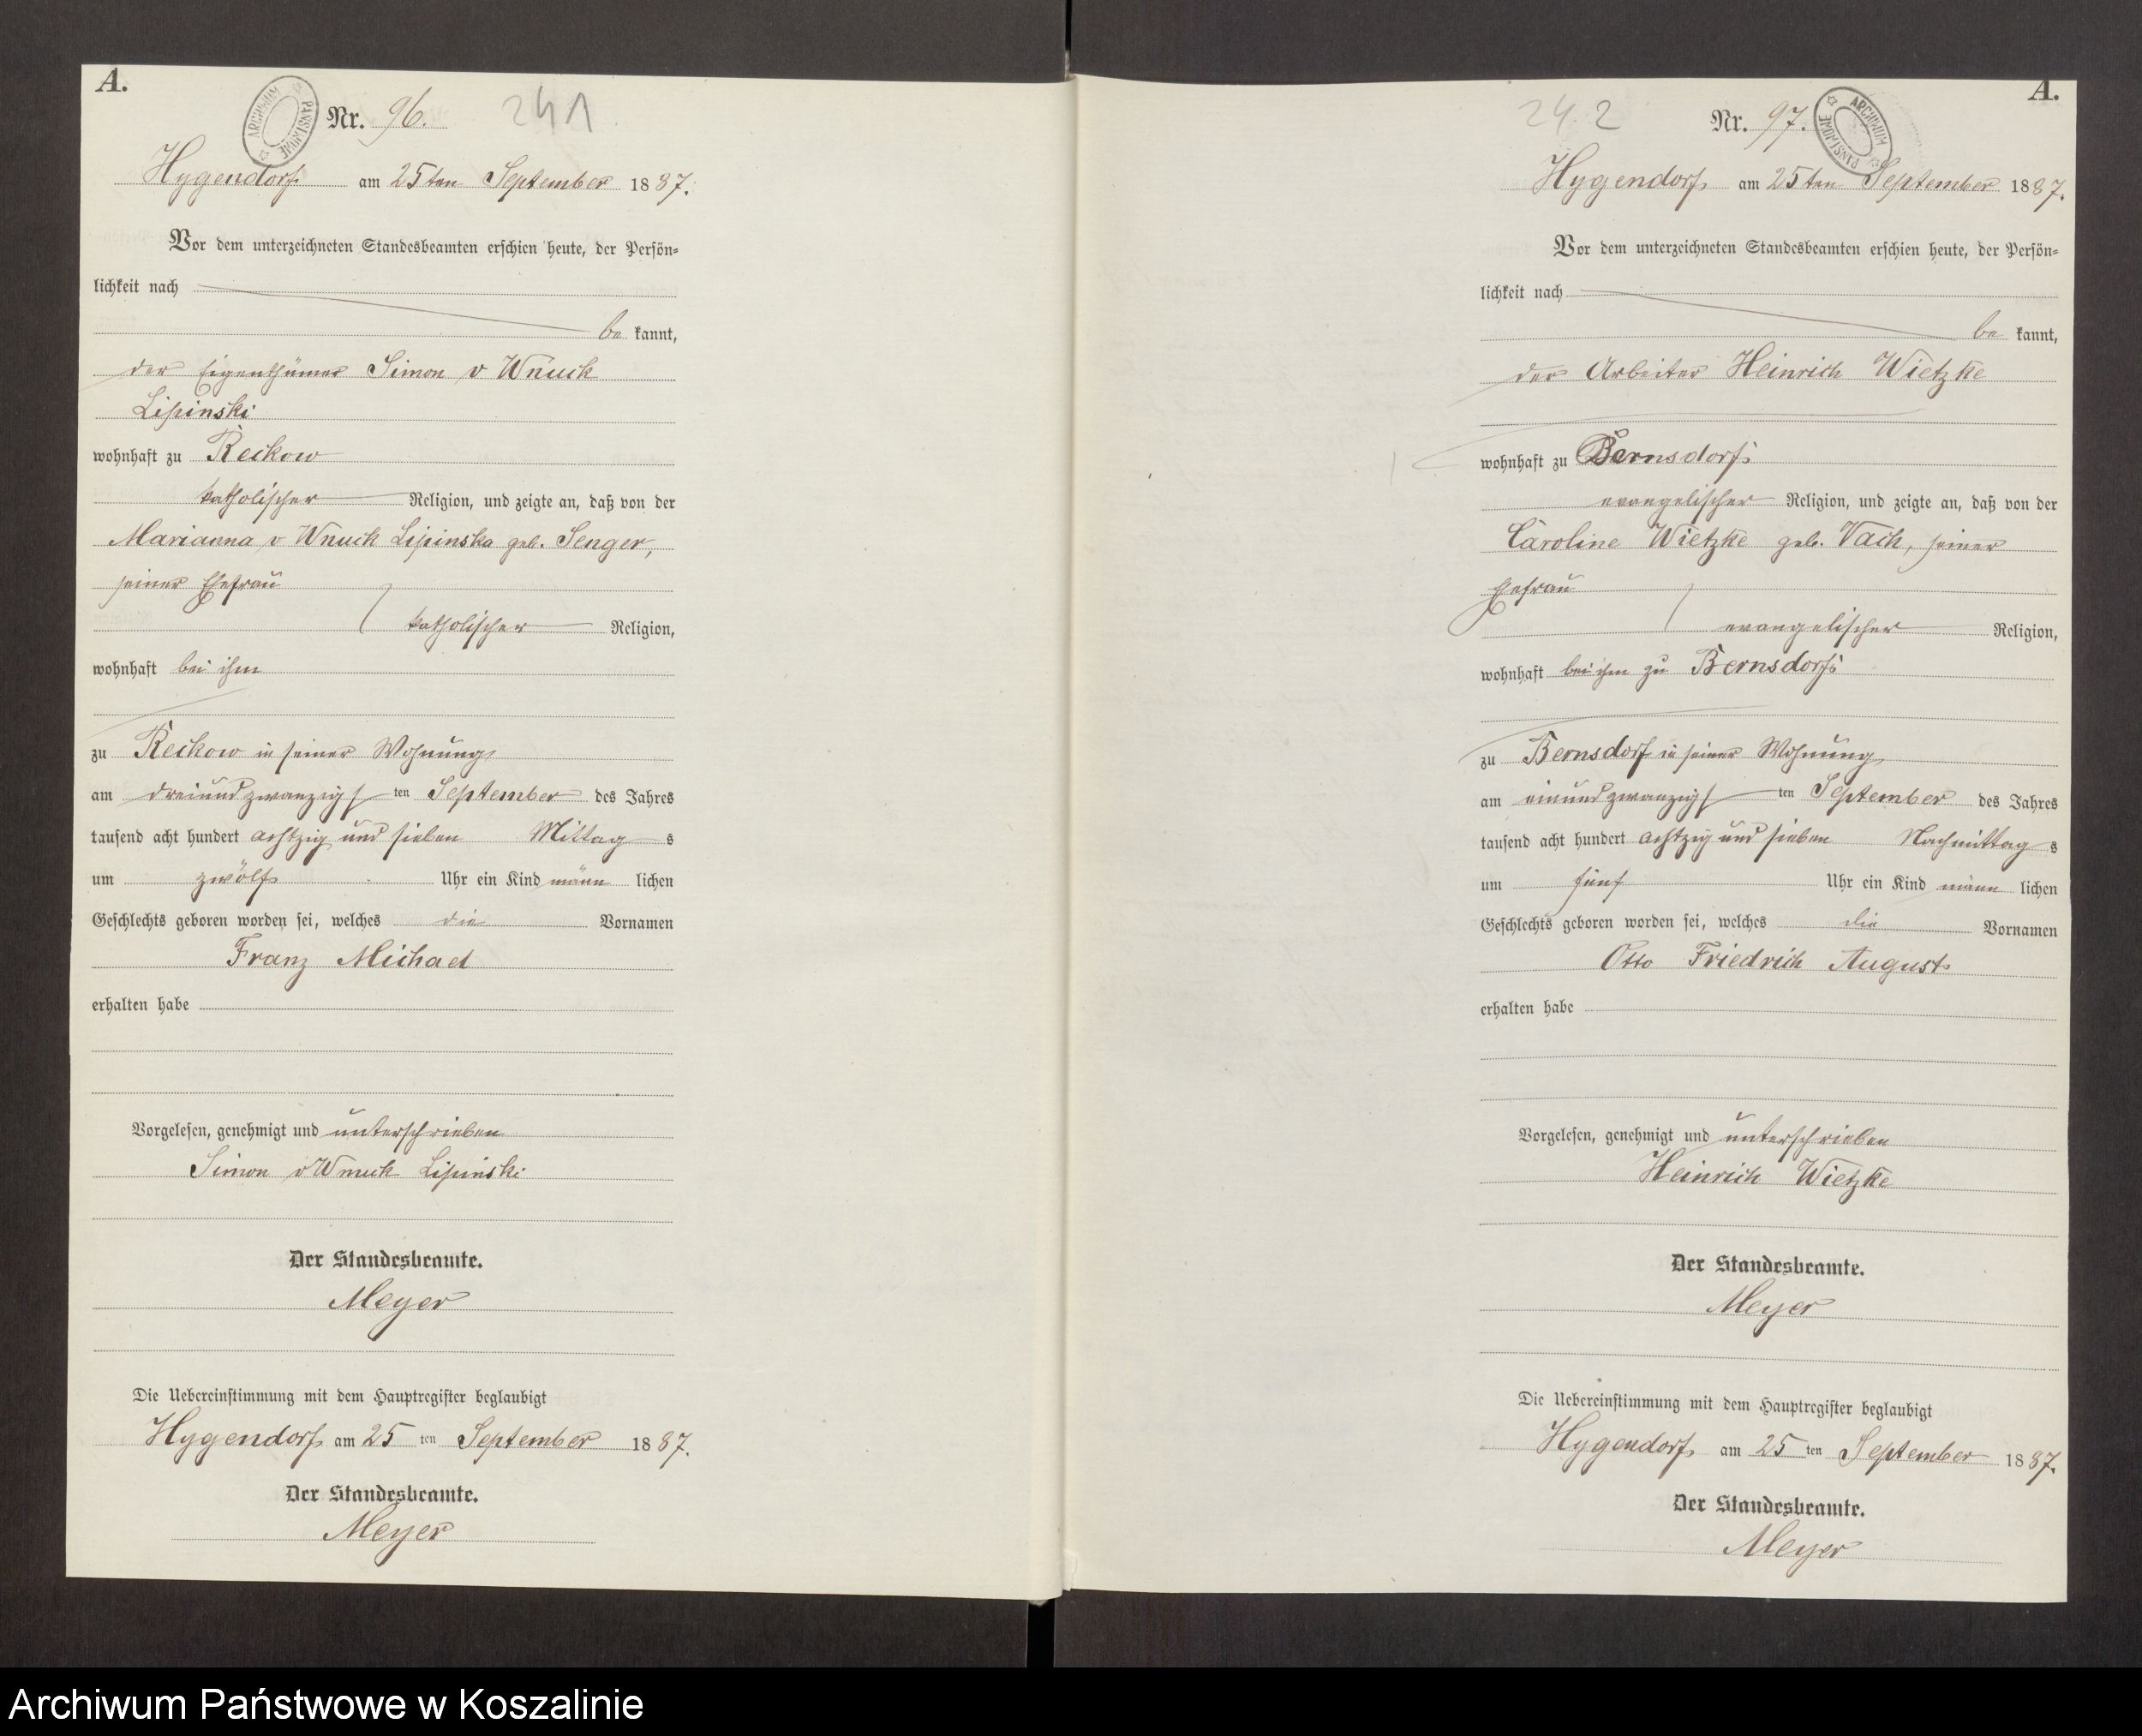 A.
ARCHIWUM PAŃSTWOWE
Nr. 96. 241
Hygendorf am 25ten September 1887.
Vor dem unterzeichneten Standesbeamten erschien heute, der Persön-
lichkeit nach
be kannt,
der Eigenthümer Simon v Wnuck
Lipinski
wohnhaft zu Reckow
katholischer Religion, und zeigte an, daß von der
Marianna v Wnuck Lipinska geb. Senger,
seiner Ehefrau
katholischer Religion,
wohnhaft bei ihm
zu Reckow in seiner Wohnung
am dreiundzwanzigs ten September des Jahres
tausend acht hundert achtzig und sieben Mittag s
um zwölf Uhr ein Kind männ lichen
Geschlechts geboren worden sei, welches die Vornamen
Franz Michael
erhalten habe
Vorgelesen, genehmigt und unterschrieben
Simon v Wnuck Lipinski
Der Standesbeamte.
Meyer
Die Uebereinstimmung mit dem Hauptregister beglaubigt
Hygendorf am 25 ten September 1887.
Der Standesbeamte.
Meyer
A.
242 Nr. 97.
ARCHIWUM PAŃSTWOWE
Hygendorf am 25ten September 1887.
Vor dem unterzeichneten Standesbeamten erschien heute, der Persön-
lichkeit nach
be kannt,
der Arbeiter Heinrich Wietzke
wohnhaft zu Bernsdorf
evangelischer Religion, und zeigte an, daß von der
Caroline Wietzke geb. Vach, seiner
Ehefrau
evangelischer Religion,
wohnhaft bei ihm zu Bernsdorf
zu Bernsdorf in seiner Wohnung
am einundzwanzigs ten September des Jahres
tausend acht hundert achtzig und sieben Nachmittag s
um fünf Uhr ein Kind männ lichen
Geschlechts geboren worden sei, welches die Vornamen
Otto Friedrich August
erhalten habe
Vorgelesen, genehmigt und unterschrieben
Heinrich Wietzke
Der Standesbeamte.
Meyer
Die Uebereinstimmung mit dem Hauptregister beglaubigt
Hygendorf am 25 ten September 1887.
Der Standesbeamte.
Meyer
Archiwum Państwowe w Koszalinie